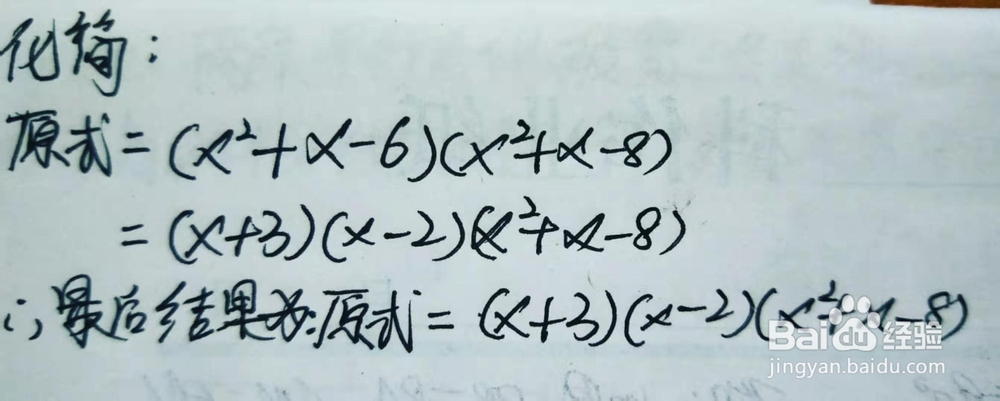 化简：
原式=(x²+x-6)(x²+x-8)
=(x+3)(x-2)(x²+x-8)
∴最后结果为:原式=(x+3)(x-2)(x²+x-8)
Baidu经验
jingyan.baidu.com